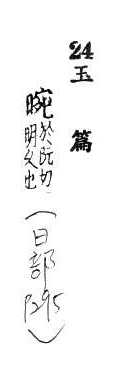 24 玉篇
晼於阮切明久也（日部P295）